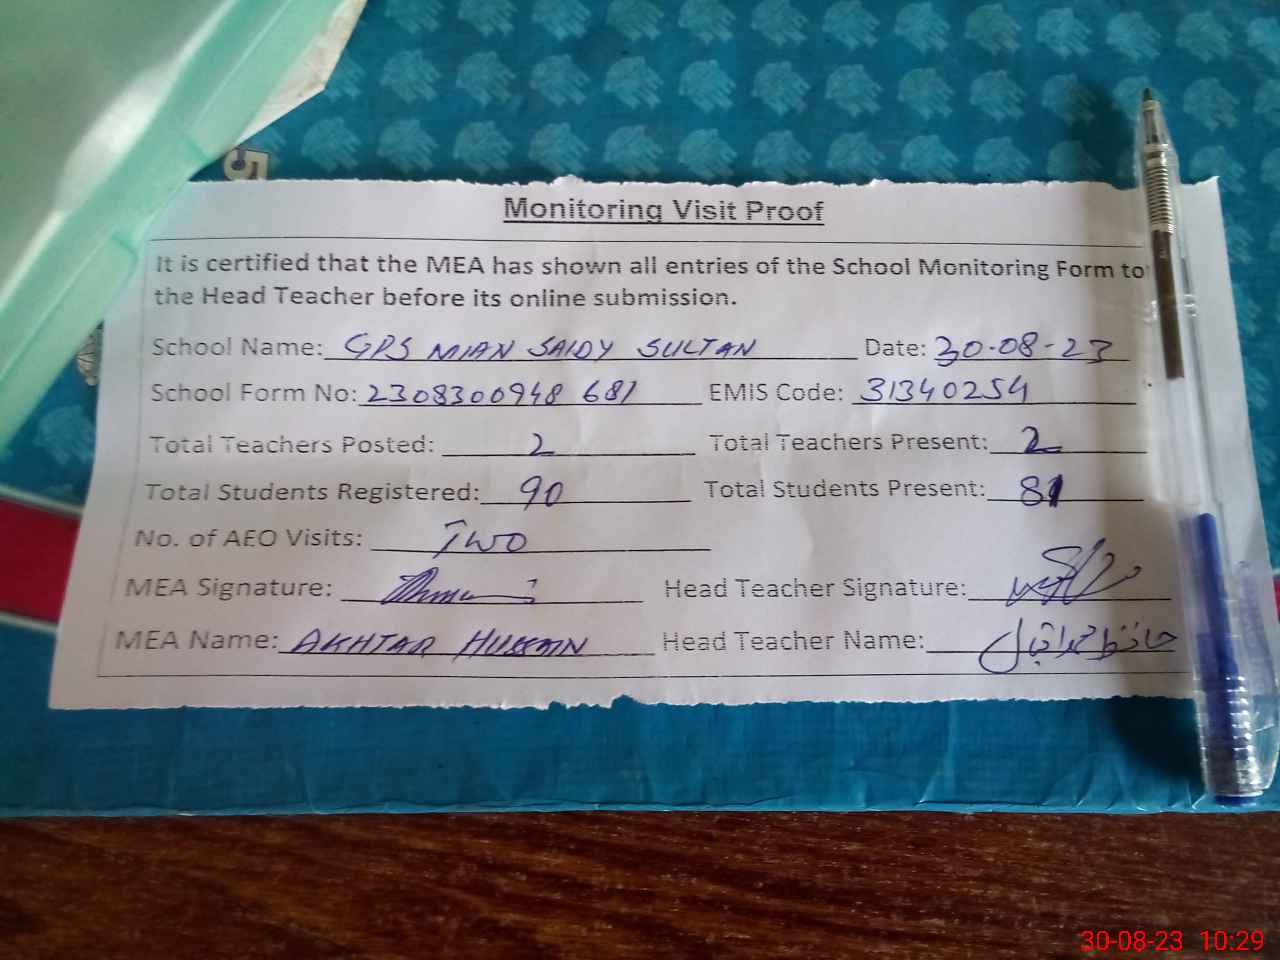 5
Monitoring Visit Proof
It is certified that the MEA has shown all entries of the School Monitoring Form to
the Head Teacher before its online submission.
School Name: GPS MIAN SAIDY SULTAN Date: 30-08-23
School Form No: 2308300948 681 EMIS Code: 31340254
Total Teachers Posted: 2 Total Teachers Present: 2
Total Students Registered: 90 Total Students Present: 81
No. of AEO Visits: Two
MEA Signature: Head Teacher Signature:
MEA Name: AKHTAR HUSSAIN Head Teacher Name: حافظ محمد اقبال
30-08-23 10:29